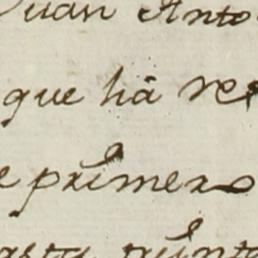 Juan Anto
que há re
e primero